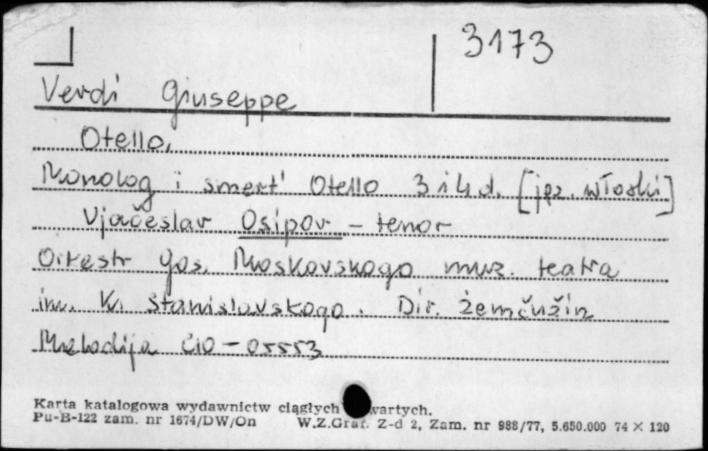 3173
Verdi Giuseppe
Otello.
Monolog i smert' Otello 3 i 4 d. [jęz. włoski]
Vjačeslav Osipov - tenor
Orkestr gos. Moskovskogo muz. teatra
im. K. Stanislavskogo. Dir. Žemčužin
Melodija C10-05553
Karta katalogowa wydawnictw ciągłych wartych.
Pu-B-122 zam. nr 1674/DW/On W.Z.Graf. Z-d 2, Zam. nr 988/77, 5.650.000 74 X 120